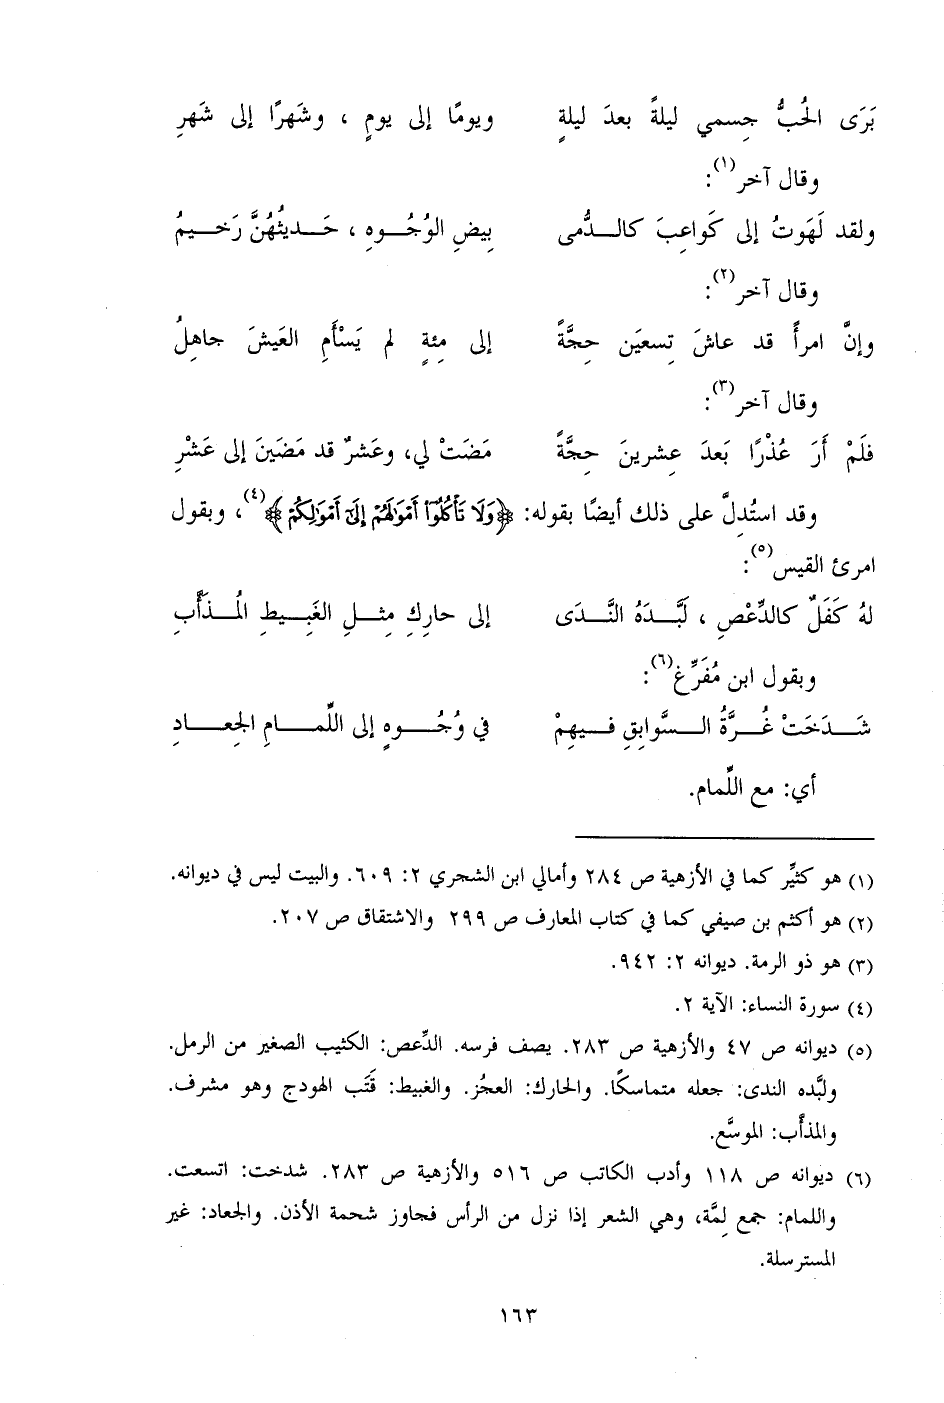 بَرَى الحُبُّ جِسمي ليلةً بعدَ ليلةٍ ويومًا إلى يومٍ ، وشَهرًا إلى شَهرِ
وقال آخر(١):
ولقد لَهَوتُ إلى كَواعِبَ كالـدُّمى بِيضِ الوُجُـوهِ ، حَـديثُهُنَّ رَخـيمُ
وقال آخر(٢):
وإنَّ امرأً قد عاشَ تِسعَين حِجَّةً إلى مِئةٍ لم يَسْأَمِ العَيشَ جاهِلُ
وقال آخر(٣):
فلَمْ أَرَ عُذْرًا بَعدَ عِشرينَ حِجَّةً مَضَتْ لي، وعَشرٌ قد مَضَينَ إلى عَشْرِ
وقد استُدِلَّ على ذلك أيضًا بقوله: ﴿وَلَا تَأْكُلُوٓا۟ أَمْوَٰلَهُمْ إِلَىٰٓ أَمْوَٰلِكُمْ﴾(٤)، وبقول
امرئ القيس(٥):
لهُ كَفَلٌ كالدِّعْصِ ، لَبَّـدَهُ النَّـدَى إلى حارِكٍ مثـلِ الغَبـيطِ المُـذَأَّبِ
وبقول ابن مُفَرِّغ(٦):
شَـدَخَتْ غُـرَّةُ الـسَّوابِقِ فـيهِمْ في وُجُـوهٍ إلى اللِّمـامِ الجِعـادِ
أي: مع اللِّمام.
(١) هو كثيِّر كما في الأزهية ص ٢٨٤ وأمالي ابن الشجري ٢: ٦٠٩. والبيت ليس في ديوانه.
(٢) هو أكثم بن صيفي كما في كتاب المعارف ص ٢٩٩ والاشتقاق ص ٢٠٧.
(٣) هو ذو الرمة. ديوانه ٢: ٩٤٢.
(٤) سورة النساء: الآية ٢.
(٥) ديوانه ص ٤٧ والأزهية ص ٢٨٣. يصف فرسه. الدِّعص: الكثيب الصغير من الرمل.
ولبَّده الندى: جعله متماسكًا. والحارك: العجُز. والغبيط: قَتَب الهودج وهو مشرف.
والمذأَّب: الموسَّع.
(٦) ديوانه ص ١١٨ وأدب الكاتب ص ٥١٦ والأزهية ص ٢٨٣. شدخت: اتسعت.
واللمام: جمع لِمَّة، وهي الشعر إذا نزل من الرأس فجاوز شحمة الأذن. والجعاد: غير
المسترسلة.
١٦٣